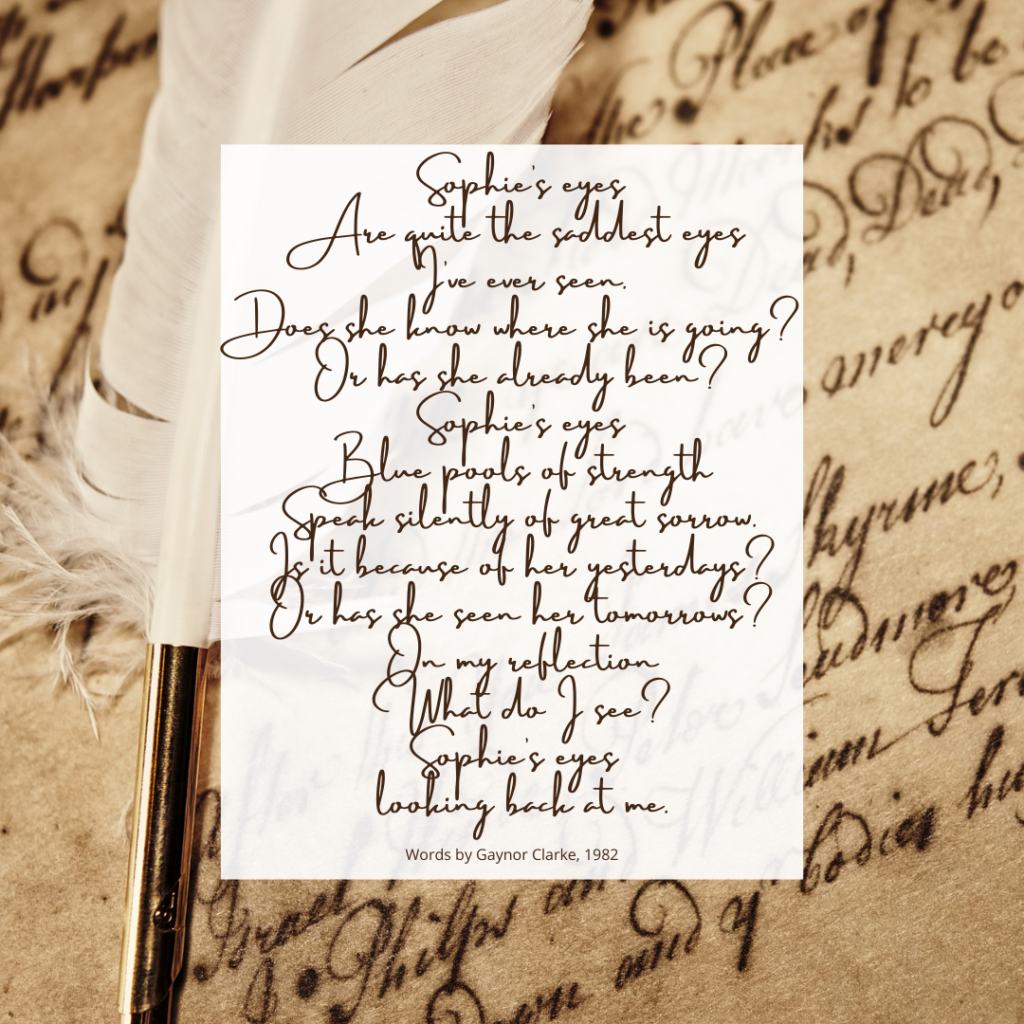 Sophie's eyes
Are quite the saddest eyes
I've ever seen.
Does she know where she is going?
Or has she already been?
Sophie's eyes
Blue pools of strength
Speak silently of great sorrow.
Is it because of her yesterdays?
Or has she seen her tomorrows?
On my reflection
What do I see?
Sophie's eyes
looking back at me.
Words by Gaynor Clarke, 1982
the Please of
to be
Dead,
mercy
William
Philps
and
bodies